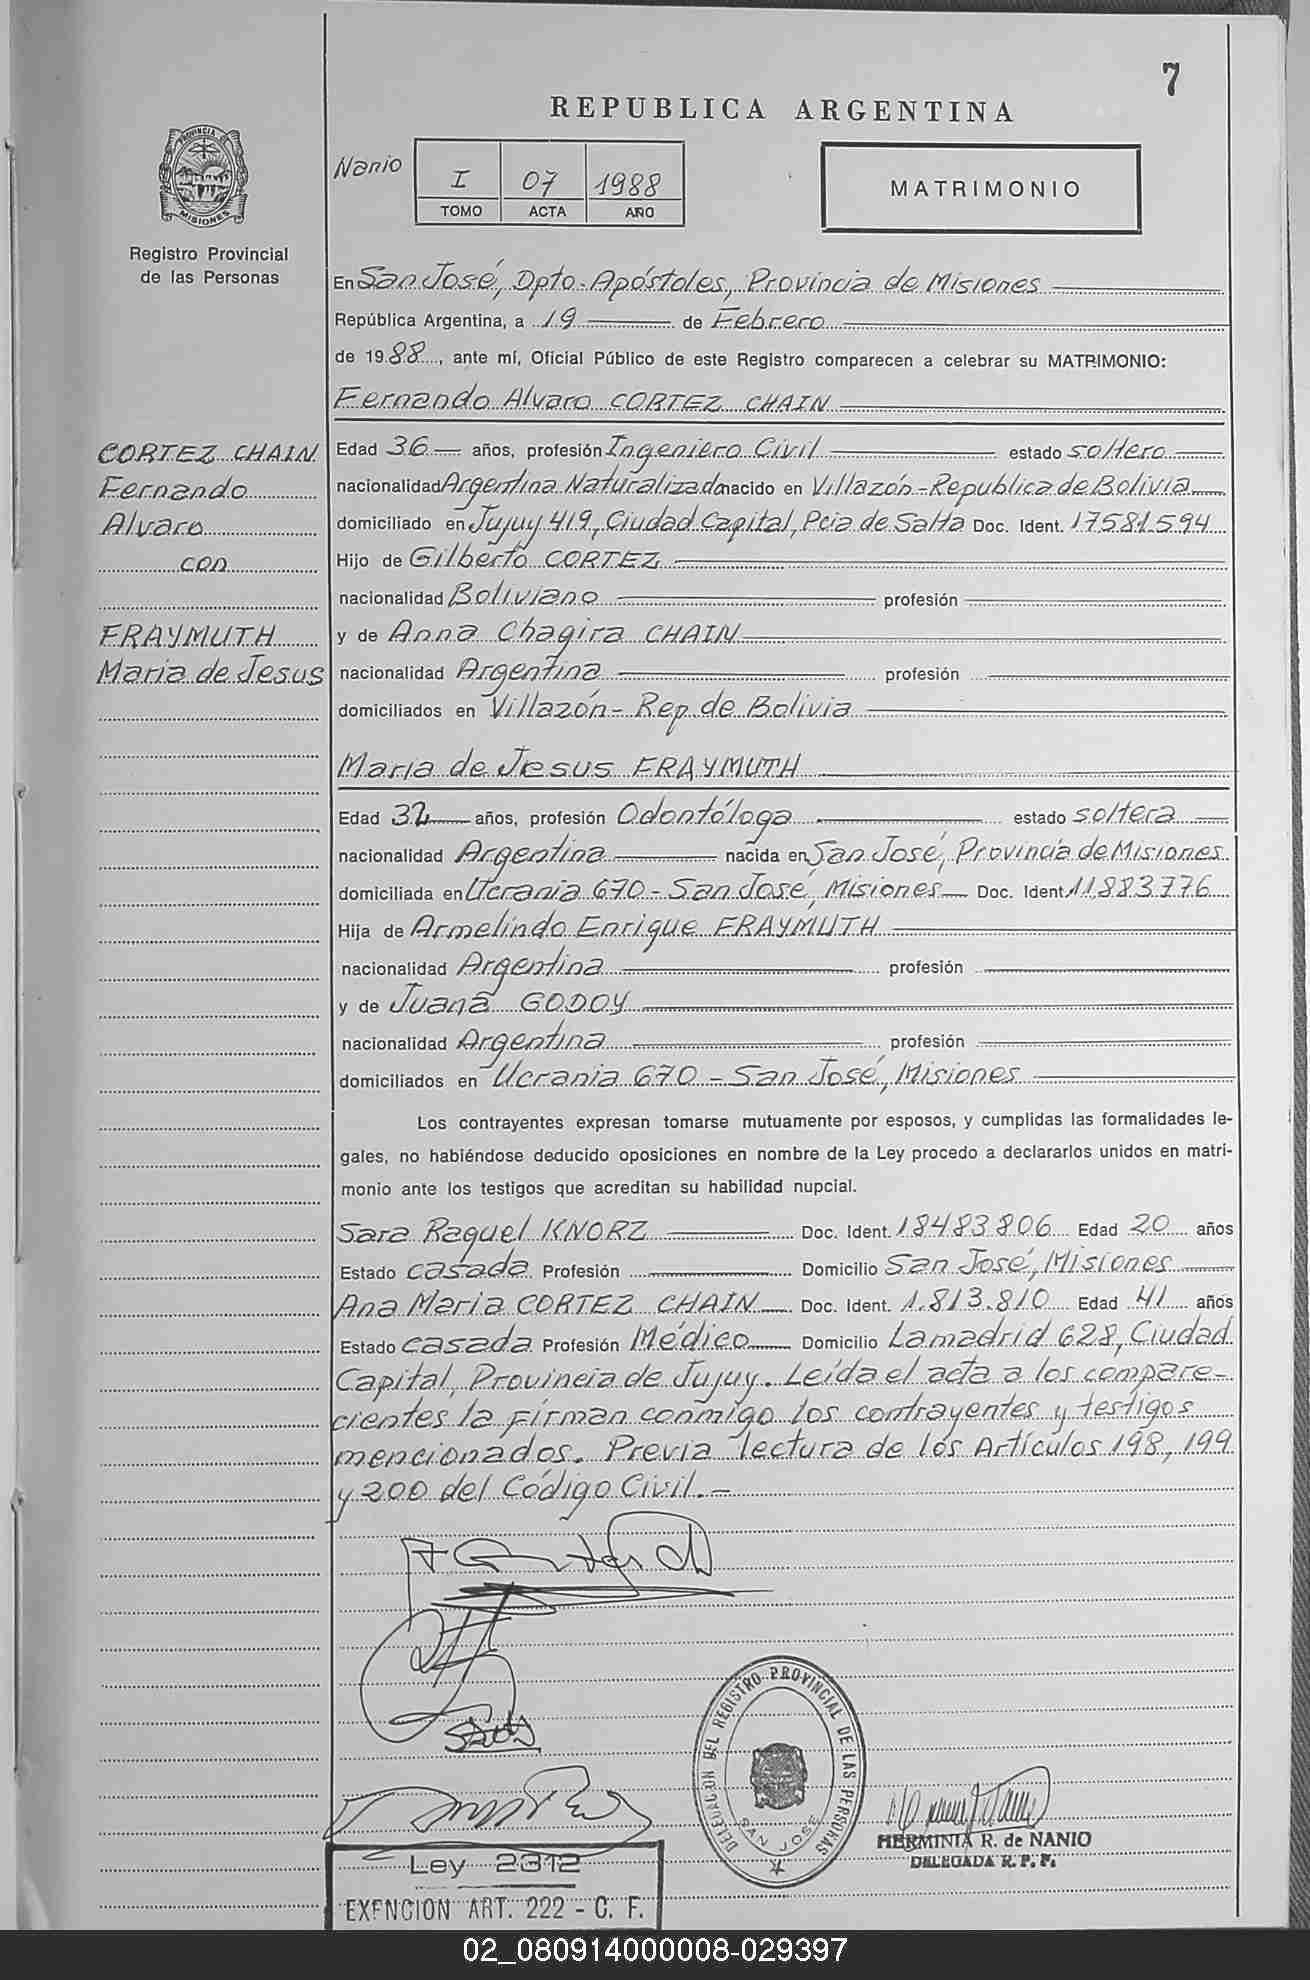 7
REPUBLICA ARGENTINA
PROVINCIA DE
MISIONES
Registro Provincial
de las Personas
Nanio
I 07 1988
TOMO ACTA AÑO
MATRIMONIO
En San José, Dpto. Apóstoles, Provincia de Misiones
República Argentina, a 19 de Febrero
de 1988, ante mí, Oficial Público de este Registro comparecen a celebrar su MATRIMONIO:
Fernando Alvaro CORTEZ CHAIN
CORTEZ CHAIN
Fernando
Alvaro
con
FRAYMUTH
Maria de Jesus
Edad 36 años, profesión Ingeniero Civil estado soltero
nacionalidad Argentina Naturalizado nacido en Villazón-Republica de Bolivia
domiciliado en Jujuy 419, Ciudad Capital, Pcia de Salta Doc. Ident. 17581594
Hijo de Gilberto CORTEZ
nacionalidad Boliviano profesión
y de Anna Chagira CHAIN
nacionalidad Argentina profesión
domiciliados en Villazón- Rep. de Bolivia
Maria de Jesus FRAYMUTH
Edad 32 años, profesión Odontóloga estado soltera
nacionalidad Argentina nacida en San José, Provincia de Misiones
domiciliada en Ucrania 670 - San José, Misiones Doc. Ident. 11.883.776
Hija de Armelindo Enrique FRAYMUTH
nacionalidad Argentina profesión
y de Juana GODOY
nacionalidad Argentina profesión
domiciliados en Ucrania 670 - San José, Misiones
Los contrayentes expresan tomarse mutuamente por esposos, y cumplidas las formalidades le-
gales, no habiéndose deducido oposiciones en nombre de la Ley procedo a declararlos unidos en matri-
monio ante los testigos que acreditan su habilidad nupcial.
Sara Raquel KNORZ Doc. Ident. 18483806 Edad 20 años
Estado casada Profesión Domicilio San José, Misiones
Ana Maria CORTEZ CHAIN Doc. Ident. 1.813.810 Edad 41 años
Estado casada Profesión Médico Domicilio Lamadrid 628, Ciudad
Capital, Provincia de Jujuy. Leída el acta a los compare-
cientes la firman conmigo los contrayentes y testigos
mencionados. Previa lectura de los Artículos 198, 199
y 200 del Código Civil.-
DELEGACION DEL REGISTRO PROVINCIAL DE LAS PERSONAS
SAN JOSE
HERMINIA R. de NANIO
DELEGADA R. P. P.
Ley 2312
EXENCION ART. 222 - C. F.
02_080914000008-029397